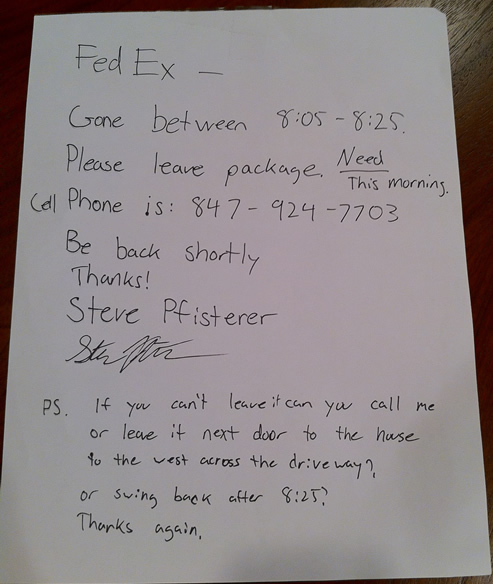 FedEx –
Gone between 8:05 - 8:25.
Please leave package. Need
This morning.
Cell Phone is: 847 - 924 - 7703
Be back shortly
Thanks!
Steve Pfisterer
PS. If you can't leave it can you call me
or leave it next door to the house
to the west across the driveway?,
or swing back after 8:25?
Thanks again.